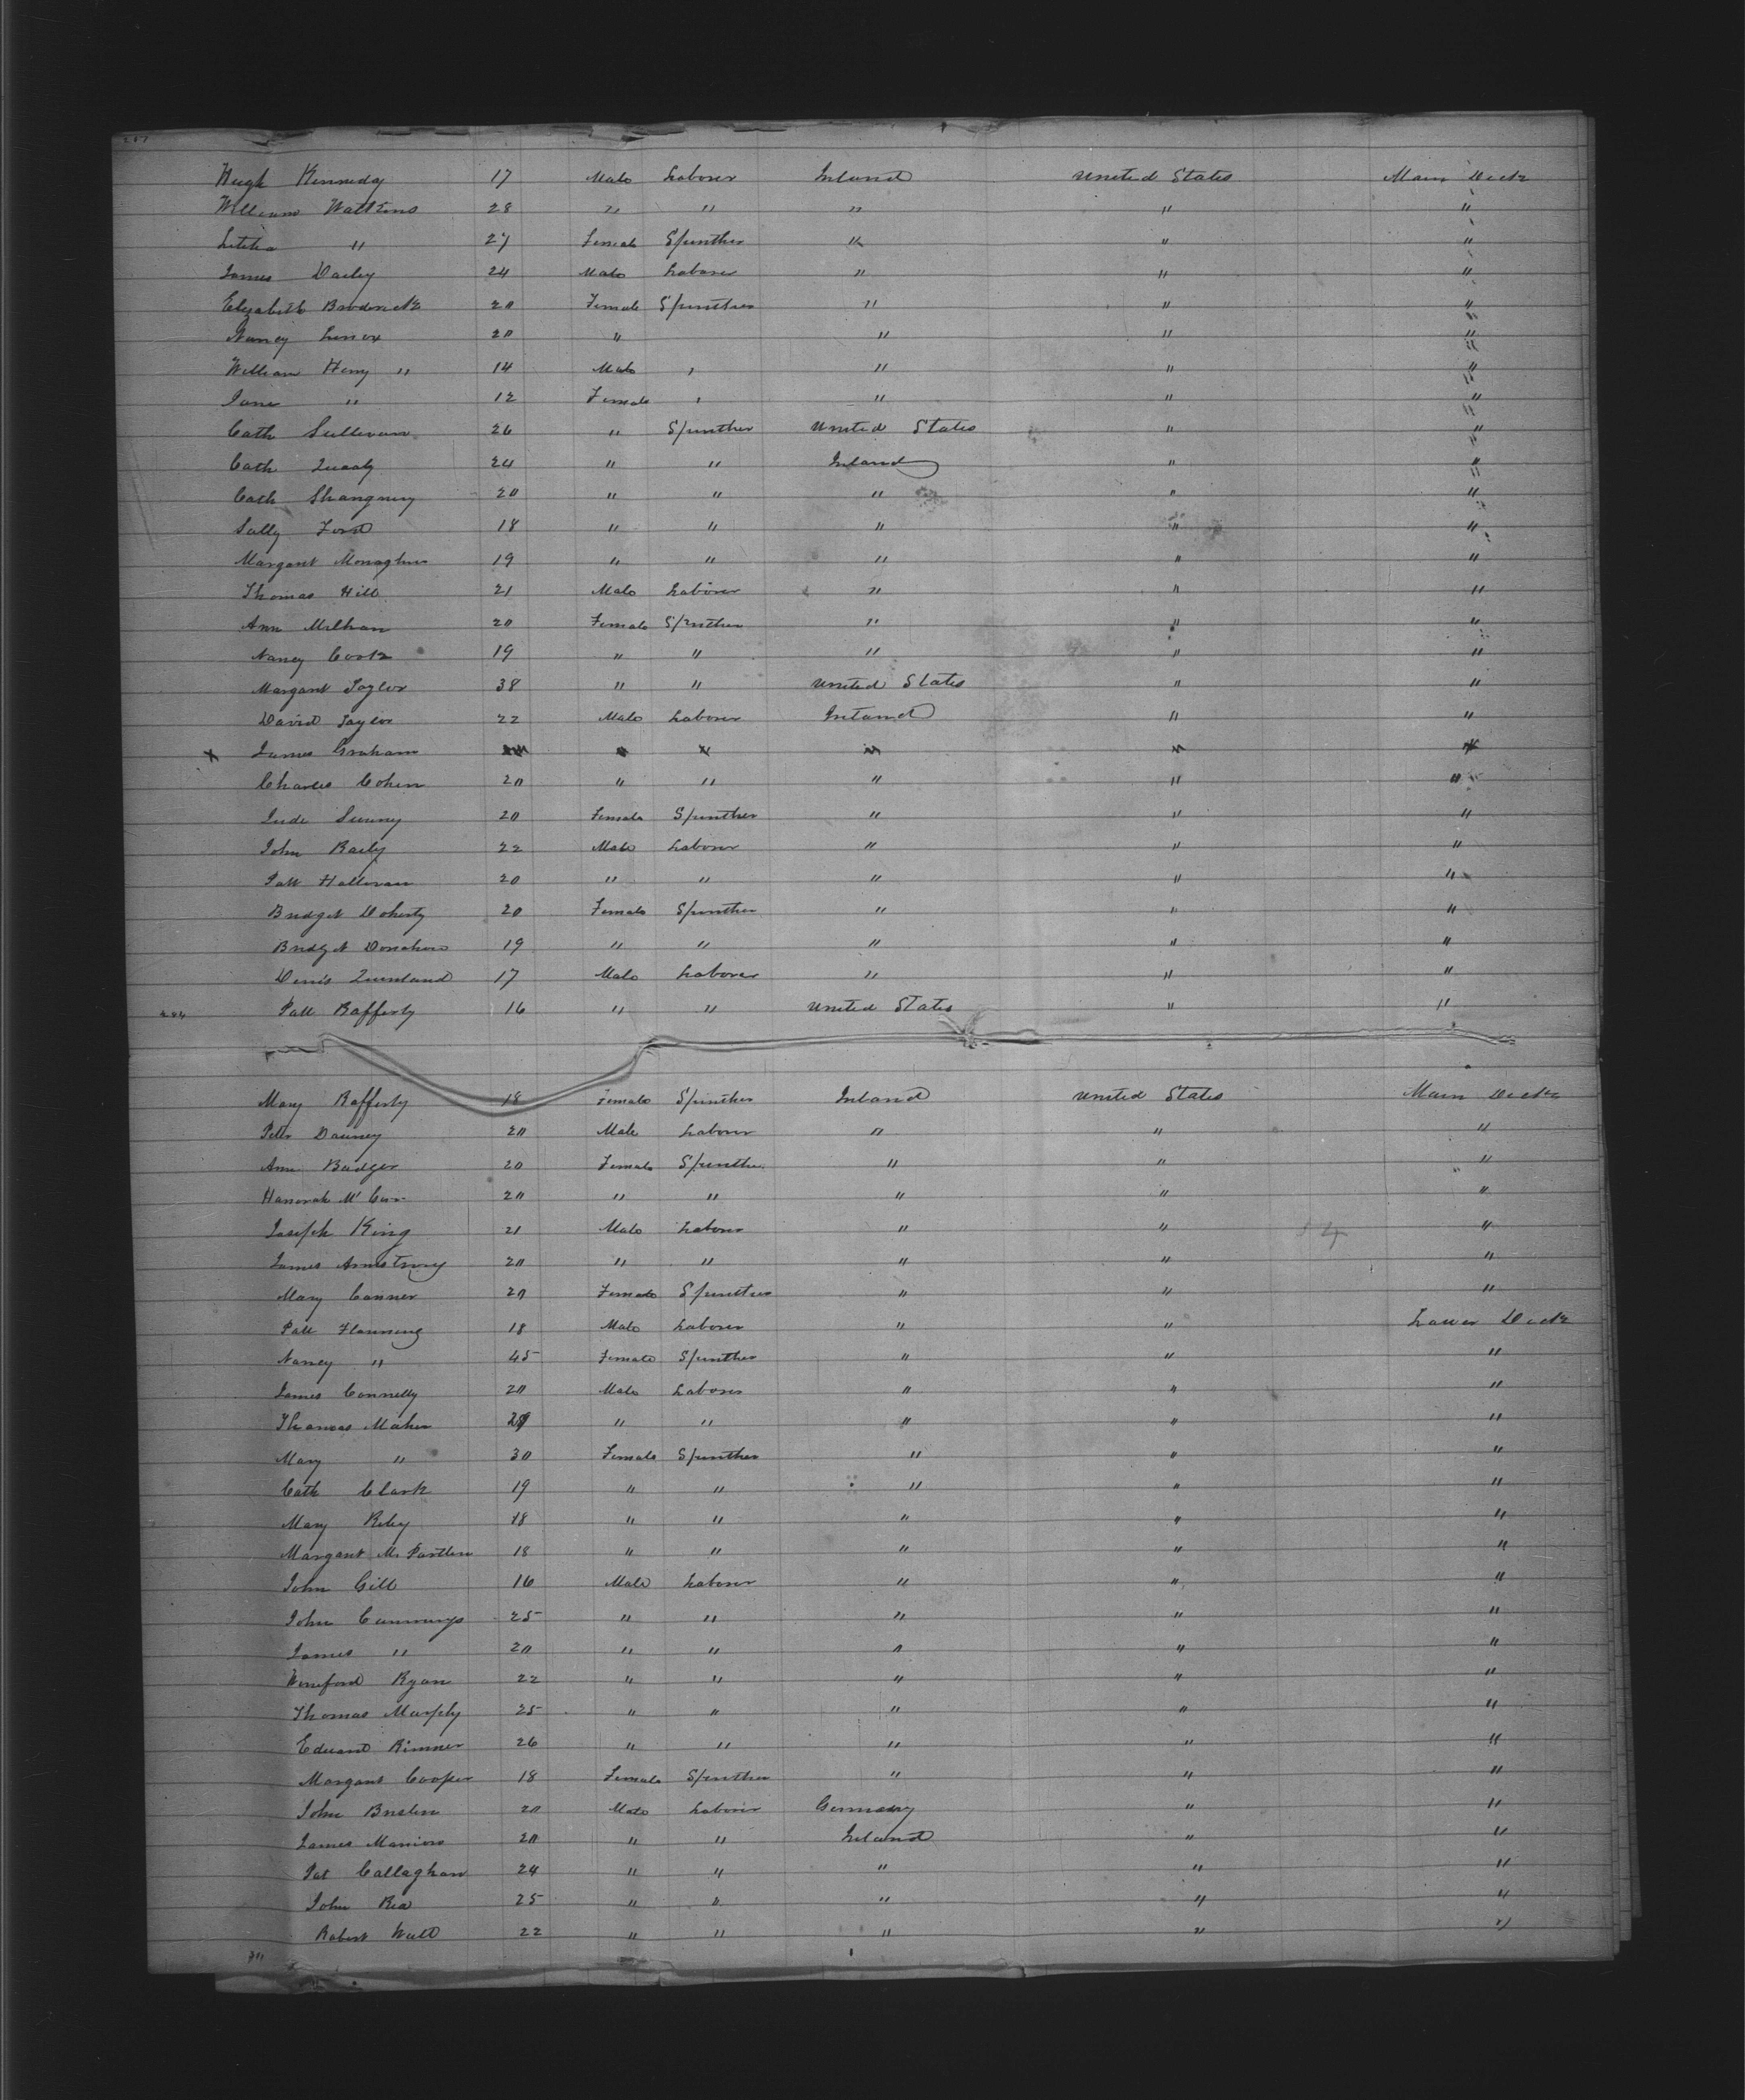 Hugh Kennedy 17 Male Laborer Ireland United States Main Deck
William Watkins 28 " " " " "
Letitia " 27 Female Spinster " " "
James Dailey 24 Male Laborer " " "
Elizabeth Broderick 20 Female Spinster " " "
Nancy Lenox 20 " " " "
William Henry " 14 Male " " " "
Jane " 12 Female " " " "
Cath Sullivan 26 " Spinster United States " "
Cath Quealy 24 " " Ireland " "
Cath 20 " " " " "
Sally Ford 18 " " " " "
Margaret Monaghan 19 " " " " "
Thomas Hill 21 Male Laborer " " "
Ann Milhan 20 Female Spinster " " "
Nancy Cook 19 " " " " "
Margaret Taylor 38 " " United States " "
David Taylor 22 Male Laborer Ireland " "
x James Graham " " " " "
Charles Cohen 20 " " " " "
Jude Sweeny 20 Female Spinster " " "
John Baily 22 Male Laborer " " "
Patt Halloran 20 " " " " "
Bridget Doherty 20 Female Spinster " " "
Bridget Donahoe 19 " " " " "
Denis Quinland 17 Male Laborer " " "
284 Patt Rafferty 16 " " United States " "
Mary Rafferty 18 Female Spinster Ireland United States Main Deck
Peter Dauney 20 Male Laborer " " "
Ann Badger 20 Female Spinster " " "
Hanorah 20 " " " " "
Joseph King 21 Male Laborer " " "
James Armstrong 20 " " " " "
Mary Conner 20 Female Spinster " " "
Patt Flanning 18 Male Laborer " " Lower Deck
Nancy " 45 Female Spinster " " "
James Connelly 20 Male Laborer " " "
Thomas Maher " " " " "
Mary " 30 Female Spinster " " "
Cath Clark 19 " " " " "
Mary Riley 18 " " " " "
Margaret McPartlen 18 " " " " "
John Gill 16 Male Laborer " " "
John Cummings 25 " " " " "
James " 20 " " " " "
Wineford Ryan 22 " " " " "
Thomas Murphy 25 " " " " "
Edward Rimmer 26 " " " " "
Margaret Cooper 18 Female Spinster " " "
John Breslin 20 Male Laborer Germany " "
James Manion 20 " " Ireland " "
Pat Callaghan 24 " " " " "
John Rea 25 " " " " "
Robert Wall 22 " " " " "